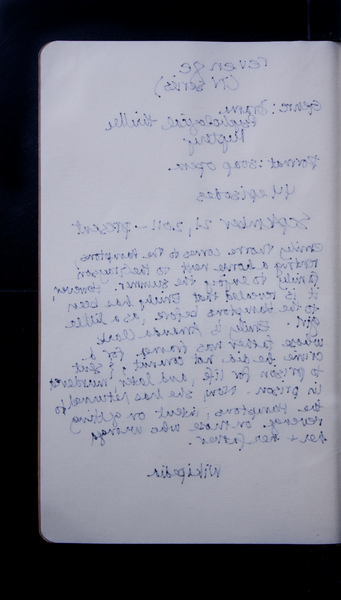 revenge
(TV series)
Genre: Drama
Psychological thriller
Mystery
Format: soap opera
44 episodes
September 21, 2011 - present
Emily Thorne comes to the Hamptons
renting a home next to the Grayson
family to enjoy the summer. However,
it is revealed that Emily has been
to the Hamptons before, as a little
girl. Emily is Amanda Clark
whose father was framed for a
crime he did not commit, & sent
to prison for life, and later murdered
in prison. Now, she has returned to
the Hamptons, intent on getting
revenge on those who wronged
her + her father
Wikipedia